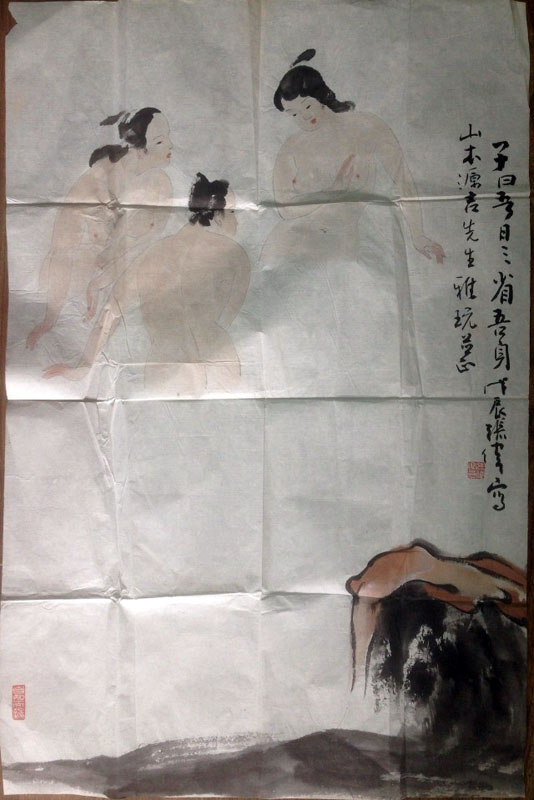 子曰吾日三省吾身戊辰張書寫
山本源吉先生雅玩並正